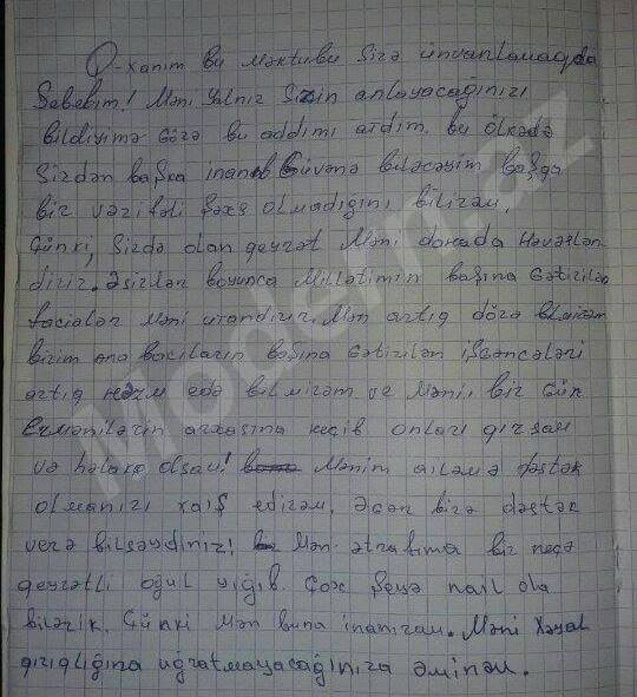 Q-xanım bu Məktubu Sizə ünvanlamaqda
Səbəbim! Məni Yalnız Sizin anlayacağınızı
bildiyimə Görə bu addımı atdım. bu ölkədə
Sizdən başka inanıb Güvənə biləcəyim başqa
bir vəzifəli Şəxs olmadığını bilirəm,
Günki, Sizdə olan qeyrət Məni dahada Həvəslən
dirir. Əsirlər boyunca Millətimin başına Gətirilən
faciələr Məni utandırır. Mən artıq dözə bilmirəm
bizim ana bacıların başına Gətirilən işgəncələri
artıq Həzm edə bilmirəm ve Məni, bir Gün
Ermənilərin arxasına keçib onları qırsam
və həlakə olsam! Mənim ailəmə dəstək
olmanızı xaiş edirəm. Əgər bizə dəstək
verə bilsəydiniz! Mən ətrafıma bir neçə
qeyrətli oğul yığıb. Çox Şeyə nail ola
bilərik. Günki Mən buna inanıram. Məni Xəyal
qırıqlığına uğratmayacağınıza əminəm.
Modern.az